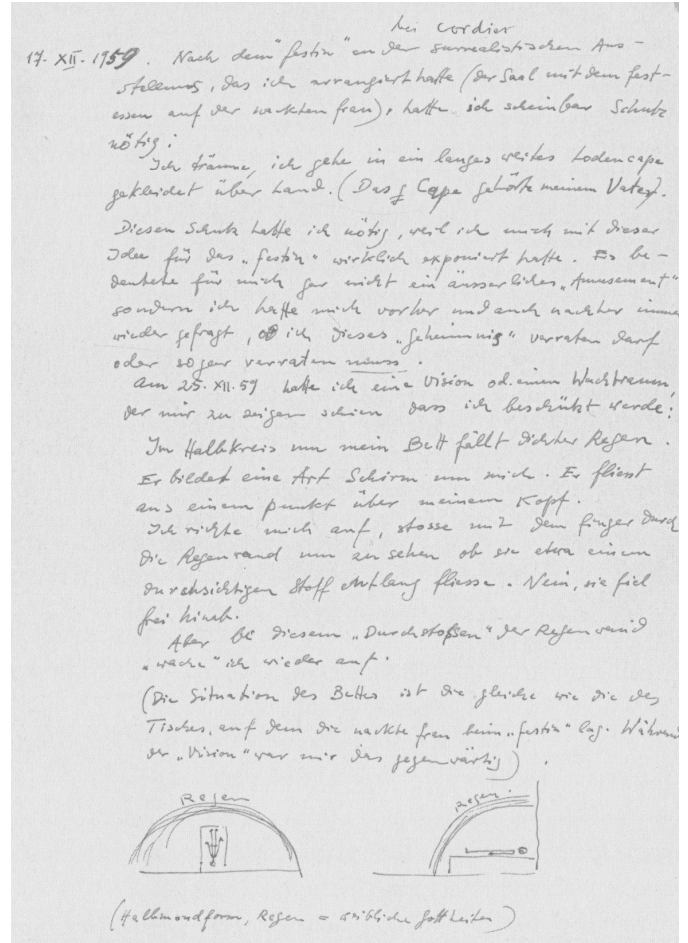 bei Cordier
17. XII. 1959. Nach dem "festin" an der surrealistischen Aus-
stellung, das ich arrangiert hatte (der Saal mit dem Fest-
essen auf der nackten Frau), hatte ich scheinbar Schutz
nötig:
Ich träume, ich gehe in ein langes weites Lodencape
gekleidet über Land. (Das Cape gehörte meinem Vater).
Diesen Schutz hatte ich nötig, weil ich mich mit dieser
Idee für das „festin" wirklich exponiert hatte. Es be-
deutete für mich gar nicht ein äusserliches „Amusement"
sondern ich hatte mich vorher und auch nachher immer
wieder gefragt, ob ich dieses „Geheimnis" verraten darf
oder sogar verraten muss.
Am 25. XII. 59 hatte ich eine Vision od. einen Wachtraum,
der mir zu zeigen schien dass ich beschützt werde:
Im Halbkreis um mein Bett fällt dichter Regen.
Er bildet eine Art Schirm um mich. Er fliesst
aus einem Punkt über meinem Kopf.
Ich richte mich auf, stosse mit dem Finger durch
die Regenwand um zu sehen ob sie etwa einem
durchsichtigen Stoff entlang fliesse. Nein, sie fiel
frei hinab.
Aber bei diesem „Durchstossen" der Regenwand
„wache" ich wieder auf.
(Die Situation des Bettes ist die gleiche wie die des
Tisches, auf dem die nackte Frau beim „festin" lag. Während
der „Vision" war mir das gegenwärtig).
Regen
Regen
(Halbmondform, Regen = weibliche Gottheiten)